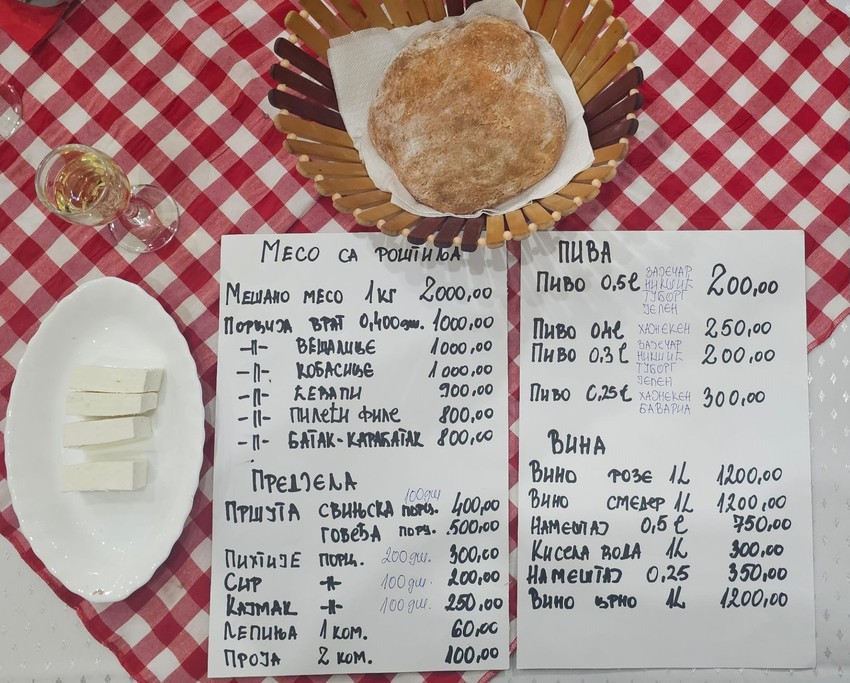 Месо са роштиља
Мешано месо 1кг 2000,00
Порција врат 0,400дш. 1000,00
-||- вешалице 1000,00
-||- кобасице 1000,00
-||- ћевапи 900,00
-||- пилећи филе 800,00
-||- батак-карабатак 800,00
Предјела
100дш
Пршута свињска порц. 400,00
говеђа порц. 500,00
Пихтије порц. 200дш. 300,00
Сир -||- 100дш. 200,00
Кајмак -||- 100дш. 250,00
Лепиња 1 ком. 60,00
Проја 2 ком. 100,00
Пива
Пиво 0,5l Зајечар 200,00
Никшић
Туборг
Јелен
Пиво 0,4l Хајнекен 250,00
Пиво 0,3l Зајечар 200,00
Никшић
Туборг
Јелен
Пиво 0,25l Хајнекен 300,00
Бавариа
Вина
Вино розе 1L 1200,00
Вино смедер 1L 1200,00
Намештај 0,5l 750,00
Кисела вода 1L 300,00
Намештај 0,25 350,00
Вино црно 1L 1200,00